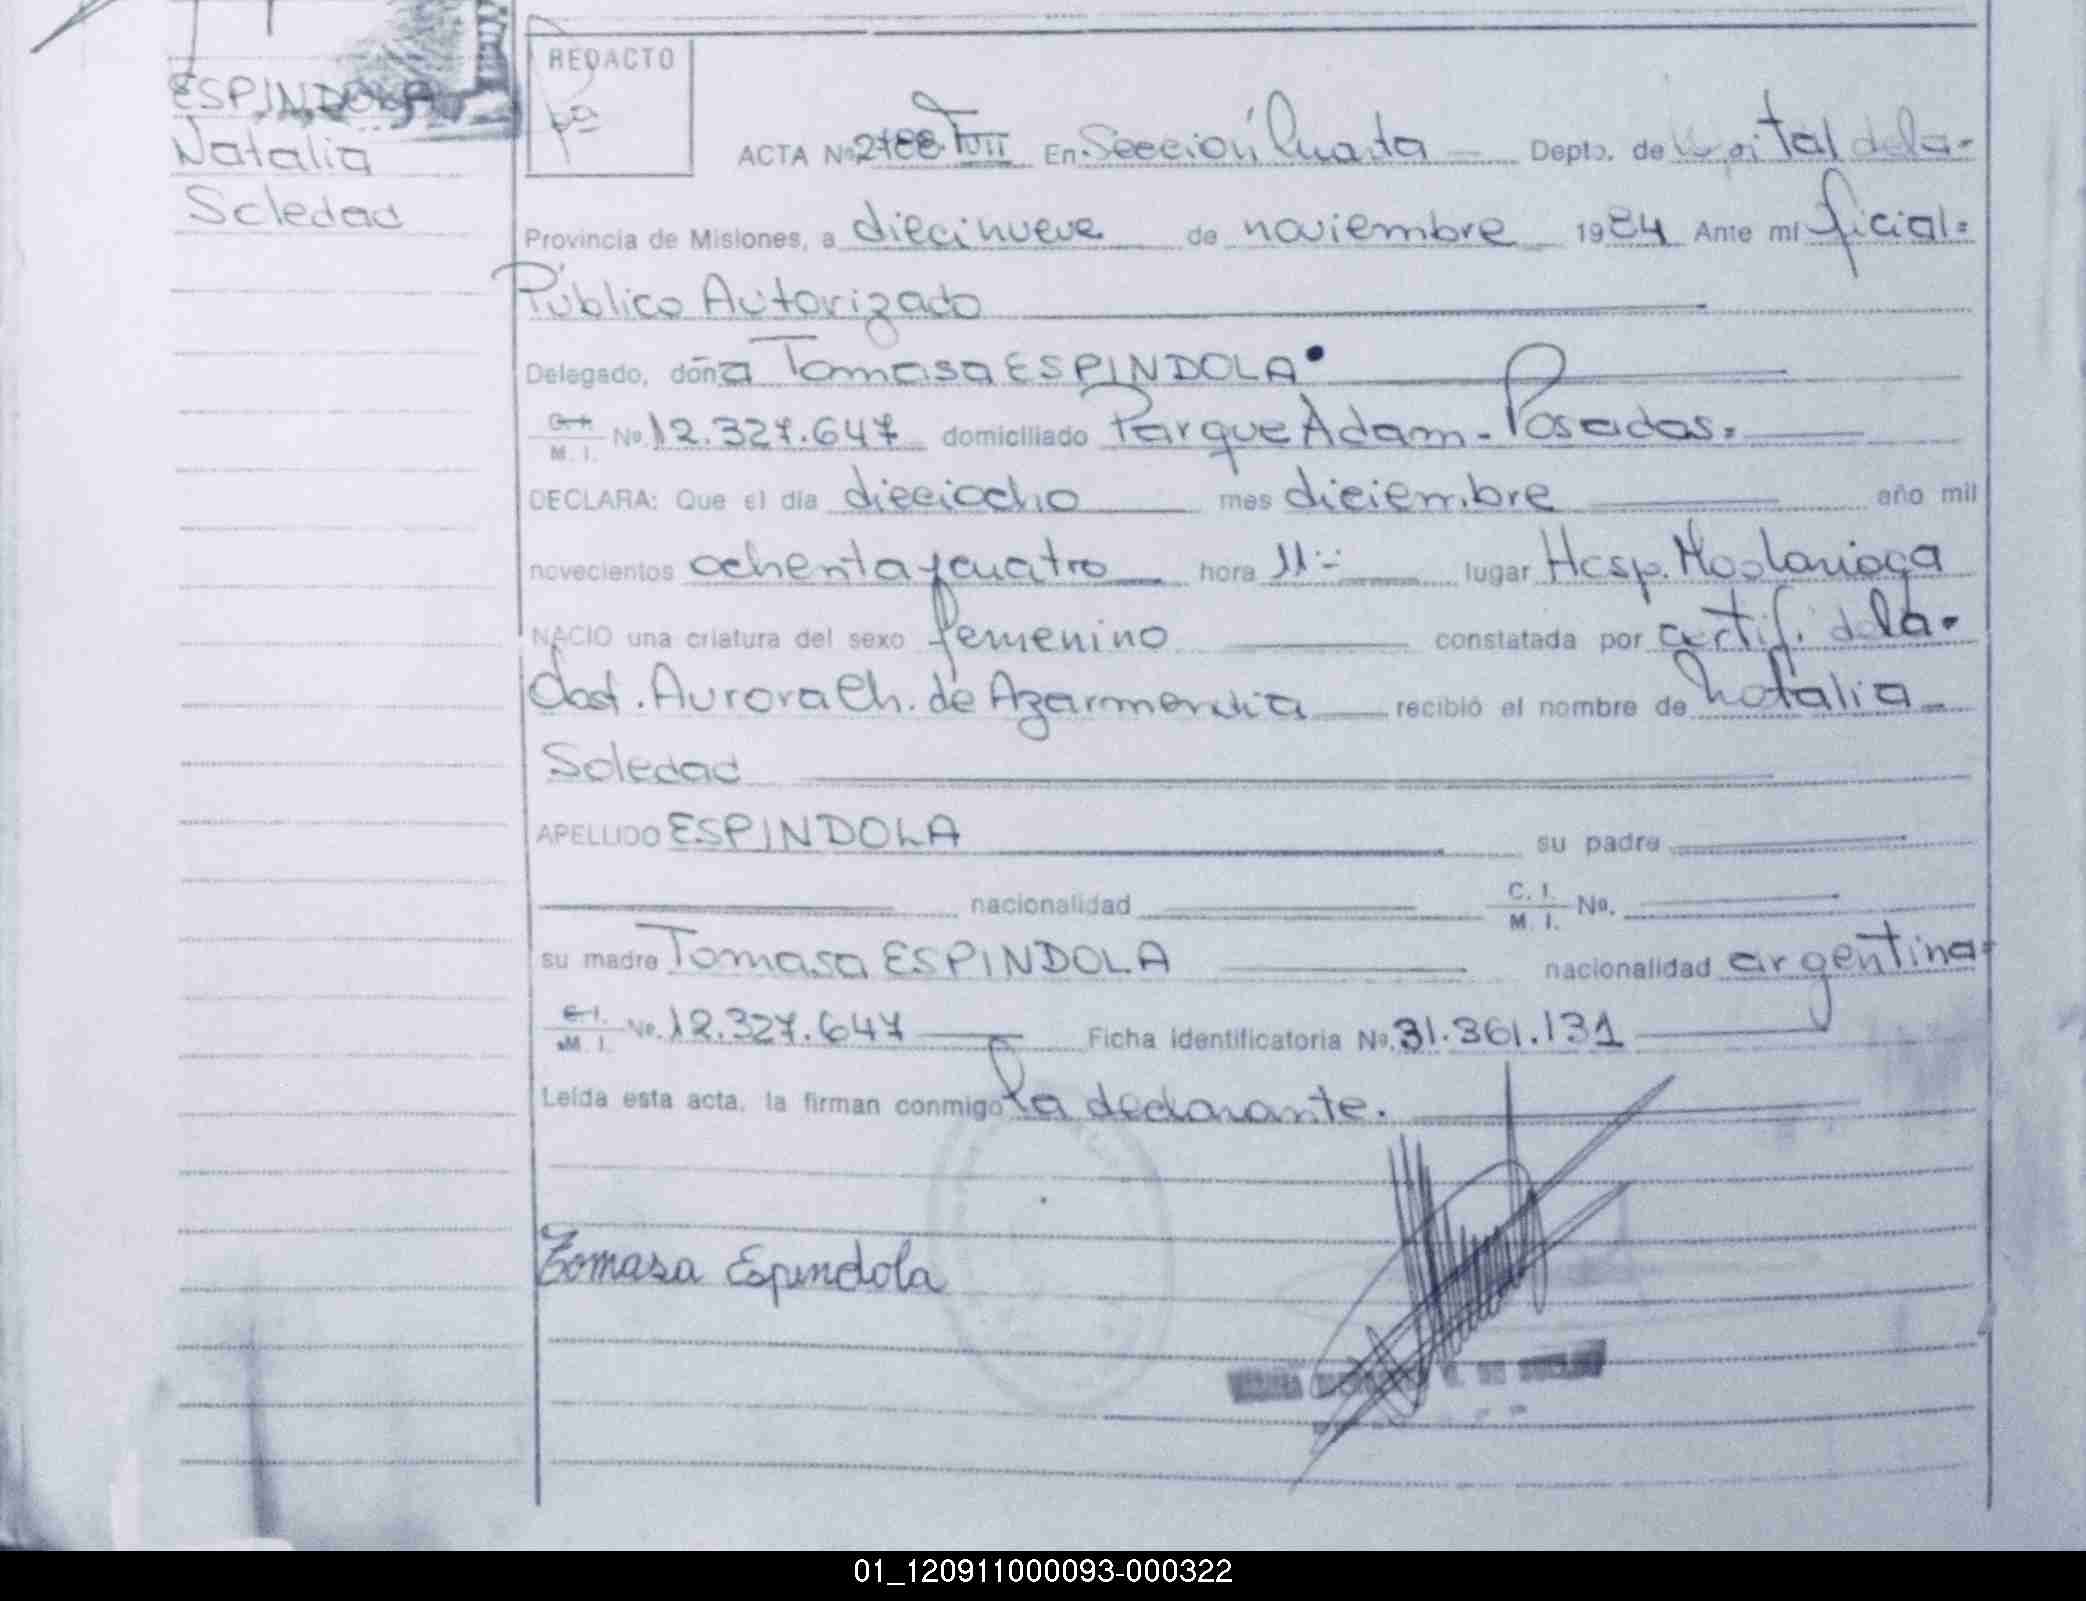 ESPINDOLA
Natalia
Soledad
REDACTO
ACTA Nº 2788 TVII En Sección Cuarta Depto. de Capital de la-
Provincia de Misiones, a diecinueve de noviembre 1984 Ante mí Oficial=
Público Autorizado
Delegado, doña Tomasa ESPINDOLA
C.I. M. I. Nº 12.327.647 domiciliado Parque Adam - Posadas.
DECLARA: Que el día dieciocho mes diciembre año mil
novecientos ochenta y cuatro hora 11:- lugar Hosp. Madariaga
NACIO una criatura del sexo femenino constatada por certif. de la-
Obst. Aurora Ch. de Azarmendia recibió el nombre de Natalia
Soledad
APELLIDO ESPINDOLA su padre
nacionalidad C. I. M. I. Nº.
su madre Tomasa ESPINDOLA nacionalidad argentina=
C.I. M. I. Nº. 12.327.647 Ficha identificatoria Nº. 31.361.131
Leída esta acta, la firman conmigo la declarante.
Tomasa Espindola
01_120911000093-000322